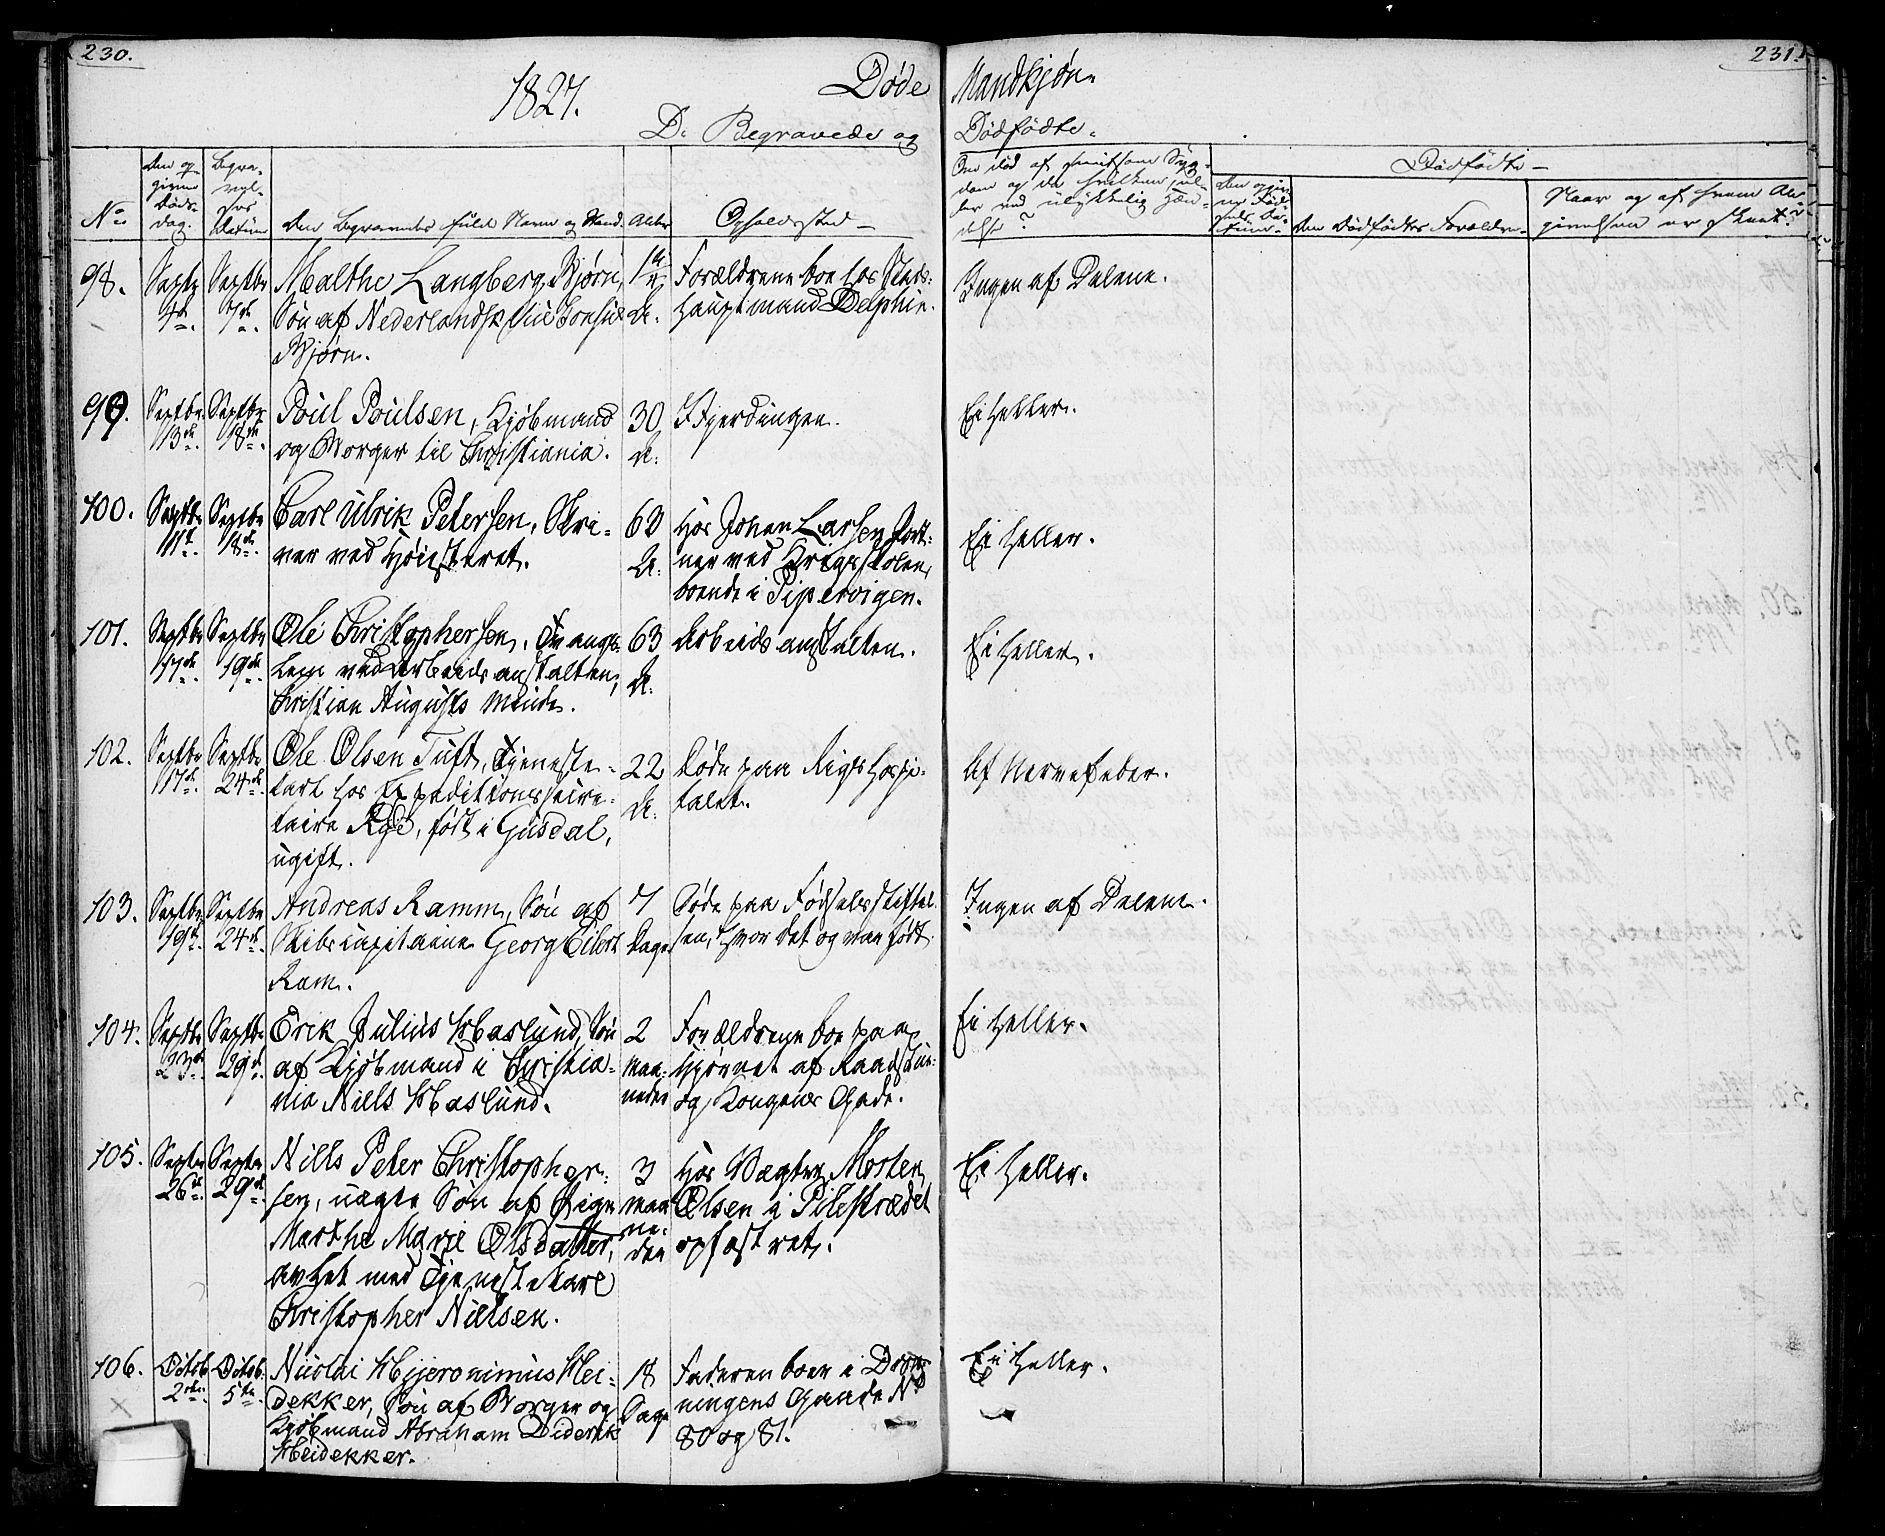 230.
231.
1827.
Døde
Mandkjøn
D: Begravede og
Dødfødte.
No
Den op-
givne
Døds-
dag.
Begra-
vel-
ses
Datum
Den Begravedes fulde Navn og Stand.
Alder
Opholdssted
Om død af smitsom Syg-
dom og da hvilken, el-
ler ved ulykkelig Hæn-
delse?
Dødfødte
Den Dødfødtes Forældre
Naar og af hvem An-
givelsen er skeet?
98.
Septbr
4d
Septbr
7de
Malthe Langberg Bjørn,
Søn af Nederlandsk Vice Consul
Bjørn.
A:
Forældrene boe hos Stads-
hauptmand Delphin.
Ingen af Delene.
99.
Septbr
13de
Septbr
18de
Poul Poulsen, Kjøbmand
og Borger til Christiania.
30
A:
I Fjerdingen.
Ei heller.
100.
Septbr
11te
Septbr
18de
Carl Ulrik Petersen, Skri-
ver ved Høiesteret.
60
A:
Hos Johan Larsen Port-
ner ved Krigsskolen,
boende i Pipervigen.
Ei heller.
101.
Septbr
17de
Septbr
19de
Ole Christophersen, Tvangs-
lem ved Arbeidsanstalten,
Christian Augusts Minde.
63
A:
Arbeidsanstalten.
Ei heller.
102.
Septbr
17de
Septbr
24de
Ole Olsen Tuft, Tjeneste-
karl hos Expeditionssecre-
taire Rye, født i Gusdal,
ugift.
22
A:
Døde paa Rigshospi-
talet.
Af Nervefeber.
103.
Septbr
19de
Septbr
24de
Andreas Ramm, Søn af
Skibscapitaine Georg Eilert
Ram.
7
Dage
Døde paa Fødselsstiftel-
sen, hvor det og var født.
Ingen af Delene.
104.
Septbr
23de
Septbr
29de
Erik Julius Haslund, Søn
af Kjøbmand i Christia-
nia Niels Haslund.
2
Maa-
neder
Forældrene boe paa
Hjørnet af Raadstue-
og Kongens Gade.
Ei heller.
105.
Septbr
26de
Septbr
29de
Niels Peter Christopher-
sen, uægte Søn af Pige
Marthe Marie Olsdatter,
avlet med Tjenestekarl
Christopher Nielsen.
3
Maa-
ne-
der
Hos Vægter Morten
Olsen i Pilestrædet
opfostret.
Ei heller.
106.
Octob.
2den
Octob.
5te
Nicolai Hijeronimus Hei-
dekker, Søn af Borger og
Kjøbmand Abraham Diderik
Heidekker.
18
Dage
Faderen boer i Dron-
ningens Gade No
80 og 81.
Ei heller.